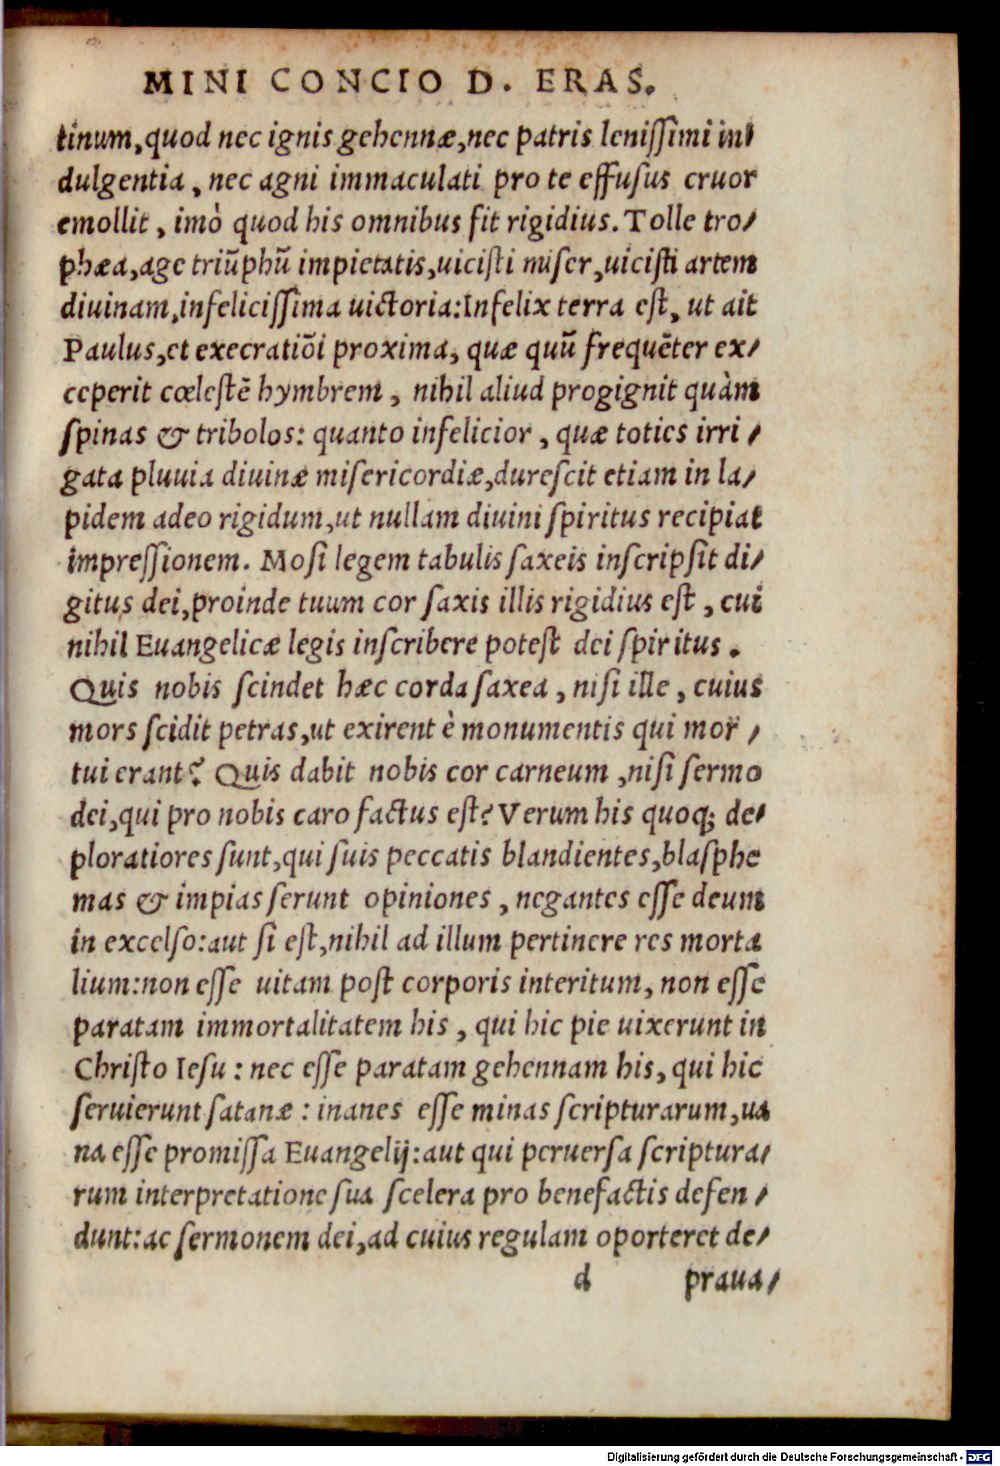 MINI CONCIO D. ERAS.
tinum, quod nec ignis gehennæ, nec patris leniſſimi in⸗
dulgentia, nec agni immaculati pro te effuſus cruor
emollit, imò quod his omnibus fit rigidius. Tolle tro⸗
phæa, age triũphũ impietatis, uiciſti miſer, uiciſti artem
diuinam, infeliciſſima uictoria: Infelix terra eſt, ut ait
Paulus, et execratiõi proxima, quæ quũ frequẽter ex⸗
ceperit cœleſtẽ hymbrem, nihil aliud progignit quàm
ſpinas & tribolos: quanto infelicior, quæ toties irri⸗
gata pluuia diuinæ miſericordiæ, dureſcit etiam in la⸗
pidem adeo rigidum, ut nullam diuini ſpiritus recipiat
impreſſionem. Moſi legem tabulis ſaxeis inſcripſit di⸗
gitus dei, proinde tuum cor ſaxis illis rigidius eſt, cui
nihil Euangelicæ legis inſcribere poteſt dei ſpiritus.
Quis nobis ſcindet hæc corda ſaxea, niſi ille, cuius
mors ſcidit petras, ut exirent è monumentis qui mor⸗
tui erant? Quis dabit nobis cor carneum, niſi ſermo
dei, qui pro nobis caro factus eſt? Verum his quoq; de⸗
ploratiores ſunt, qui ſuis peccatis blandientes, blaſphe
mas & impias ſerunt opiniones, negantes eſſe deum
in excelſo: aut ſi eſt, nihil ad illum pertinere res morta
lium: non eſſe uitam poſt corporis interitum, non eſſe
paratam immortalitatem his, qui hic pie uixerunt in
Chriſto Ieſu: nec eſſe paratam gehennam his, qui hic
ſeruierunt ſatanæ: inanes eſſe minas ſcripturarum, ua
na eſſe promiſſa Euangelij: aut qui peruerſa ſcriptura⸗
rum interpretatione ſua ſcelera pro benefactis defen⸗
dunt: ac ſermonem dei, ad cuius regulam oporteret de⸗
d praua⸗
Digitalisierung gefördert durch die Deutsche Forschungsgemeinschaft - DFG